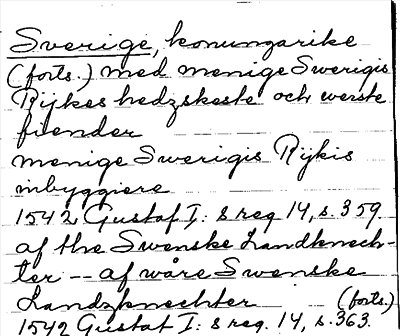 Sverige, konungarike
(forts.) med menige Swerigis
Rijkes hedzskeste och verste
fiender
menige Swerigis Rijkis
inbyggiere
1542 Gustaf I: s reg. 14, s. 359.
af the Swenske Landknech-
ter -- af wåre Swenske
Landzknechter (forts.)
1542 Gustaf I: s reg. 14, s. 363.